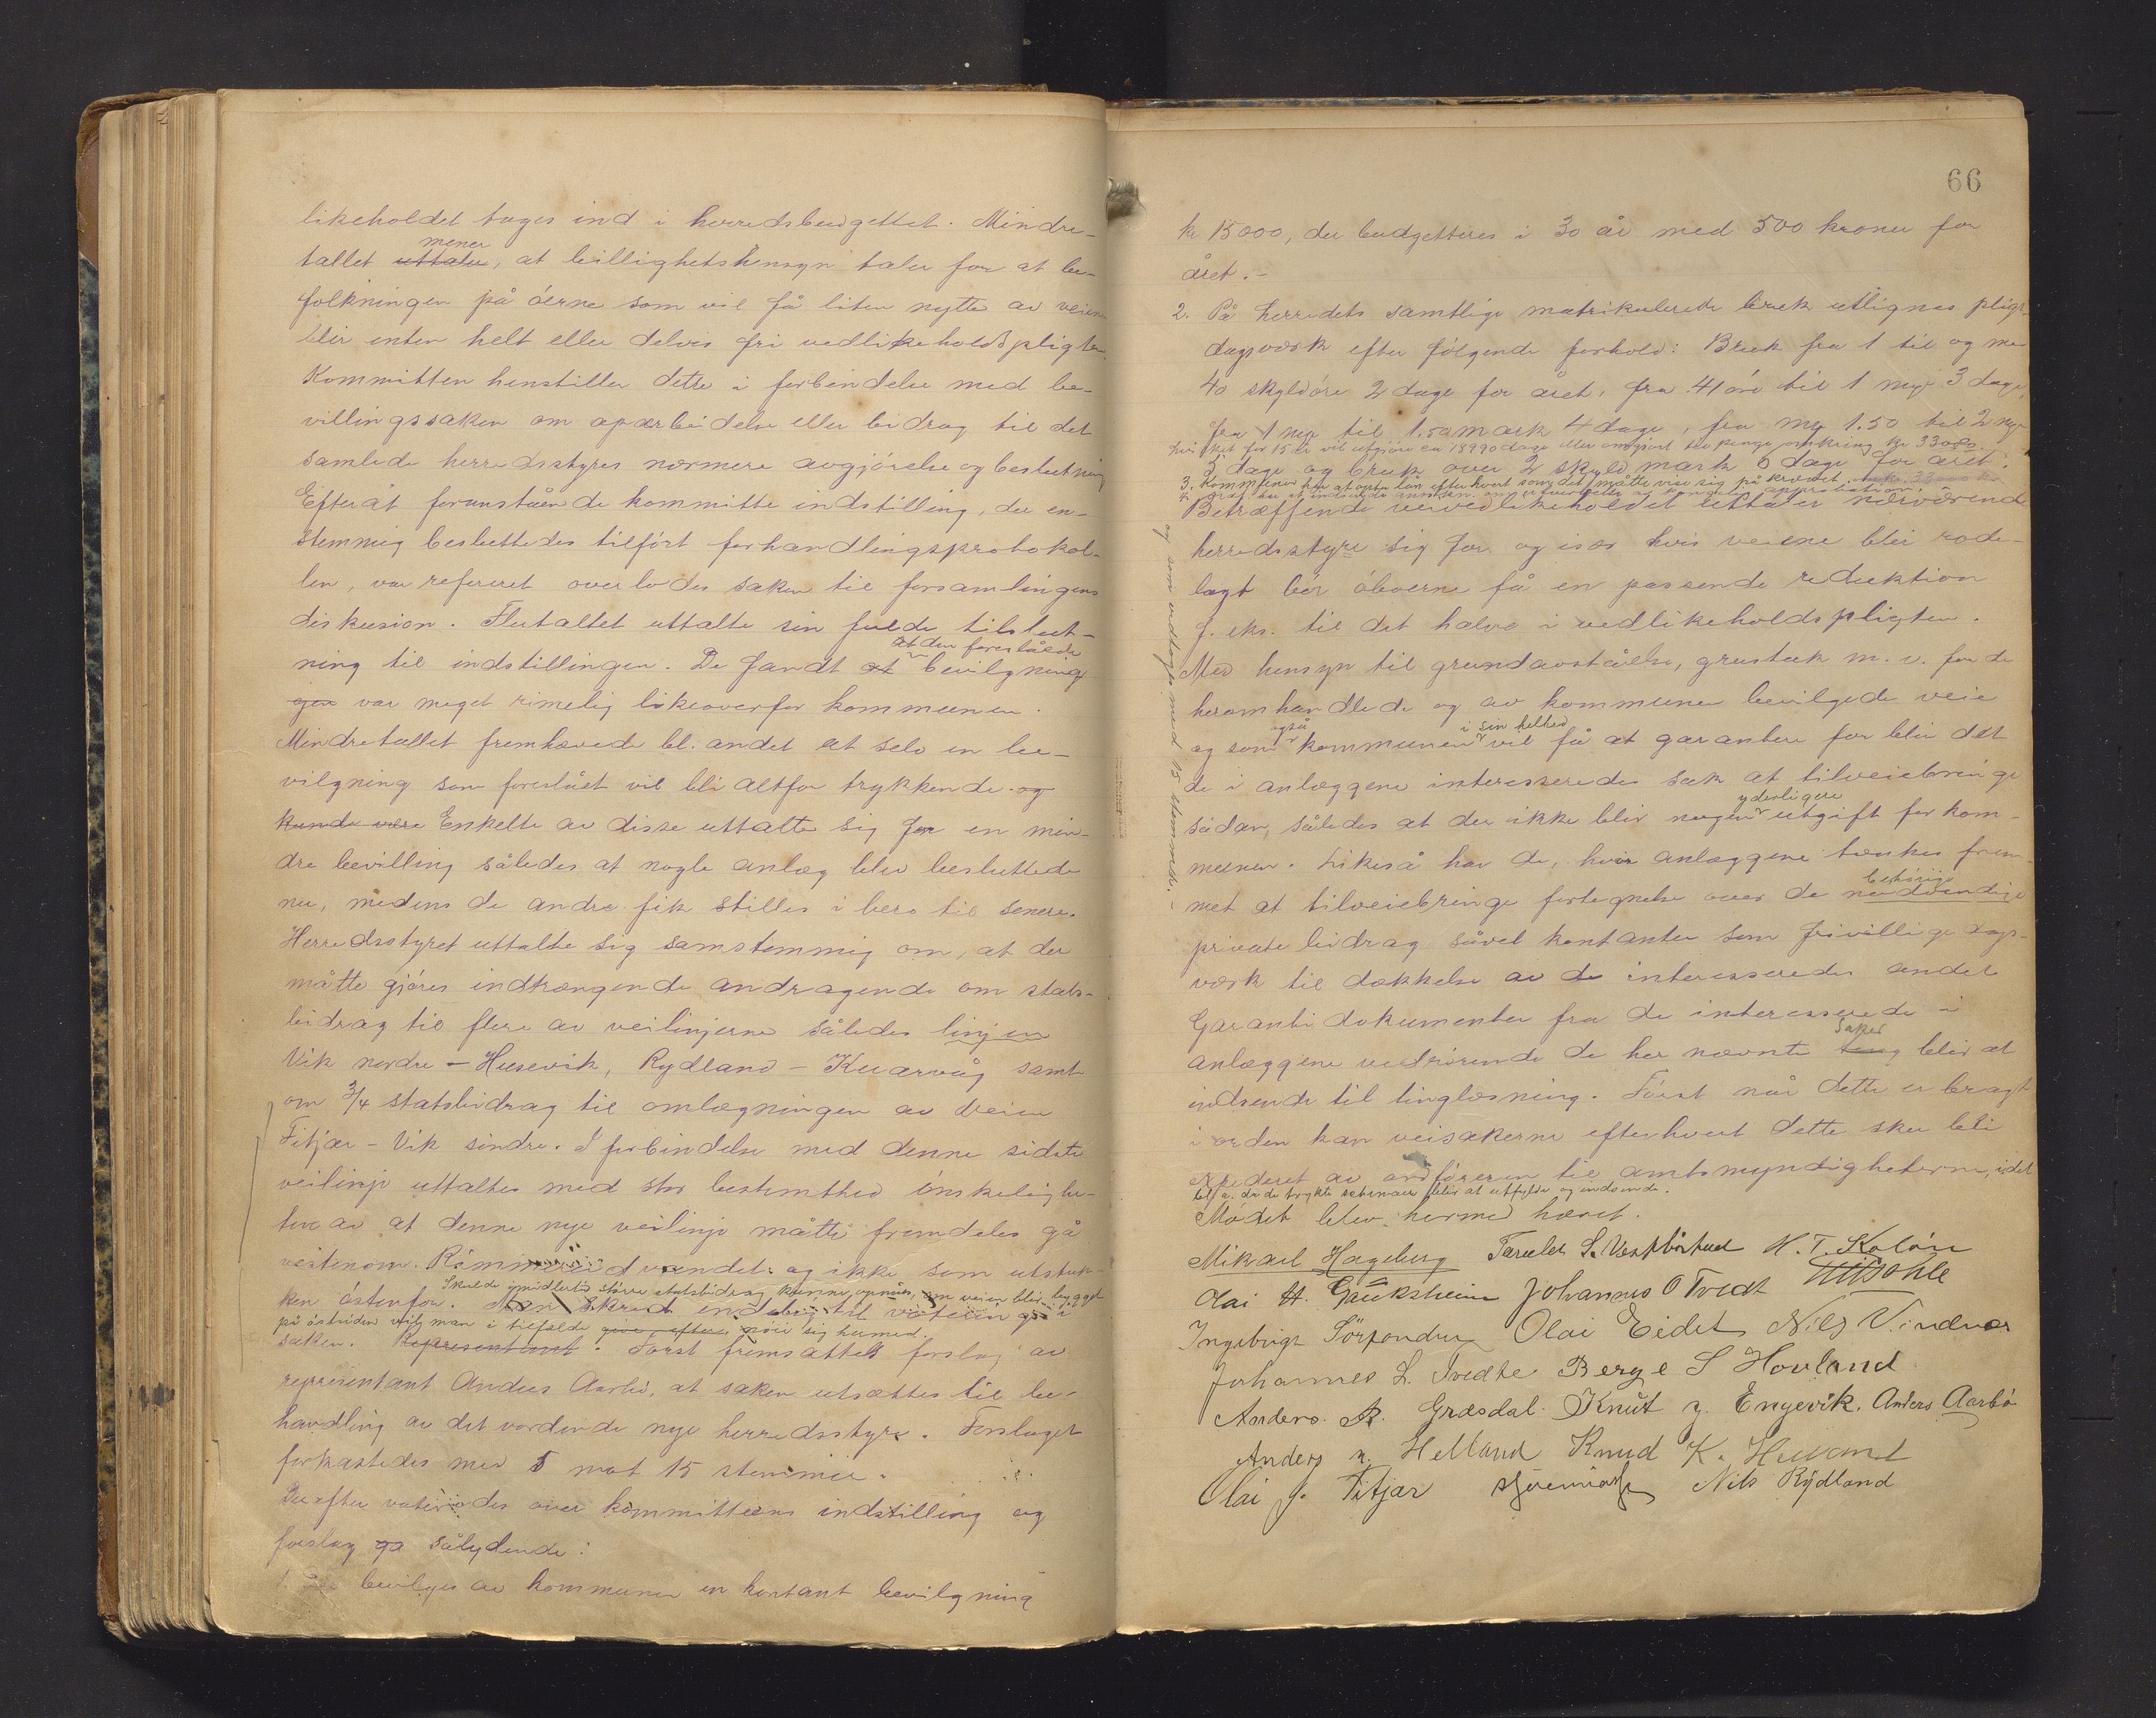 likeholdet tages ind i herredsbudgettet. Mindre-
mener
tallet uttaler, at billighetshensyn taler for at be-
folkningen på óerne som vil få liten nytte av veiene
blir enten helt eller delvis fri vedlikeholdspligten.
Kommitten henstiller dette i forbindelse med be-
villingssaken om oparbeidelse eller bidrag til det
samlede herredsstyres nærmere avgjórelse og beslutning
Efterat foranstående kommitte indstilling, der en-
stemmig besluttedes tilfórt forhandlingsprotokol-
len, var refereret overlodes saken til forsamlingens
diskusion. Flertallet uttalte sin fulde tilslut-
at den foreslåede
ning til indstillingen. De fandt at bevilgning
var meget rimelig likeoverfor kommunen.
Mindretallet fremhævede bl. andet at selv en be-
vilgning som foreslået vil bli altfor trykkende og
kunde være Enkelte av disse uttalte sig for en min-
dre bevilling således at nogle anlæg blev besluttede
nu, medens de andre fik stilles i bero til senere.
Herredsstyret uttalte sig samstemmig om, at der
måtte gjóres indtrængende andragende om stats-
bidrag til flere av veilinjerne således linjen
Vik nordre - Husevik, Rydland - Kuarvåg samt
om 3/4 statsbidrag til omlægningen av veien
Fitjar - Vik sindre. I forbindelse med denne sidste
veilinje uttaltes med stor bestemthed ónskelighe-
ten av at denne nye veilinje måtte fremdeles gå
vestenom vandet og ikke som utstuk-
Skulde imidlertid större statsbidrag kunne opnåes, om veien blir bygget
ken óstenfor. Man skred endelig til votering i
på óstsiden vil man i tilfælde give efter nöie sig hermed.
saken. Representant. Först fremsattes forslag av
representant Anders Aarbö, at saken utsættes til be-
handling av det vordende nye herredsstyre. Forslaget
forkastedes med 5 mot 15 stemmer.
Derefter voteredes over kommitteens indstilling og
forslag sålydende:
1. Der bevilges av kommunen en kontant bevilgning
66
kr 15000, der budgetteres i 30 år med 500 kroner for
året.-
2. På herredets samtlige matrikulerede bruk utlignes pligt-
dagsværk efter fölgende forhold: Bruk fra 1 til og med
40 skyldöre 2 dage for året, fra 41 öre til 1 mrk 3 dage,
fra 1 mrk til 1.50 mark 4 dage, fra mrk 1.50 til 2 mrk
hvilket for 15 år vil utgjöre ca 18990 dage eller omgjort til penge omkring kr 33000
5 dage og bruk over 2 skyld mark 6 dage for året.
3. Kommunen har at opta lån efterhvert som det måtte vise sig på krævet
Betræffende veivedlikeholdet uttaler nærværende
herredsstyre sig for og især hvis veiene blir rode-
lagt bör öboerne få en passende reduktion
f. eks. til det halve i vedlikeholdspligten.
Med hensyn til grundavståelse, grustak m. v. for de
heromhandlede og av kommunen bevilgede veie
også i sin helhed
og som kommunen vil få at garantere for blir det
de i anlæggene interesseredes sak at tilveiebringe
yderligere
sådan, således at der ikke blir nogen utgift for kom-
munen. Likeså har de, hvis anlæggene tænkes frem-
behörige
met at tilveiebringe fortegnelse over de nødvendige
private bidrag såvel kontanter som frivillige dags-
værk til dækkelse av de interesseredes andel
Garanti dokumenter fra de interesserede i
saker
anlæggene vedrörende de her nævnte ting blir at
indsende til tinglæsning. Först når dette er bragt
i orden kan veisakerne efterhvert dette sker bli
expederet av ordföreren til amtsmyndigheterne, idet
bl. a. da de trykte schemaer blir at utfylde og indsende.
Mödet blev hermed hævet.
og som vedtoges med 15 stemmer.-
Mikael Hageberg Tarald S. Vestbóstad H. T. Kolóen
Olai H. Grüksheim Johannes O Tvedt
Ingebrigt Sörfonden Olai Eidet Nils Vindnes
Johannes L. Tvedte Berge S Hovland
Anders. A. Græsdal. Knut J. Engevik. Anders Aarbö
Anders N. Helland Knud K. Helland
Olai J. Fitjar Nils Rydland